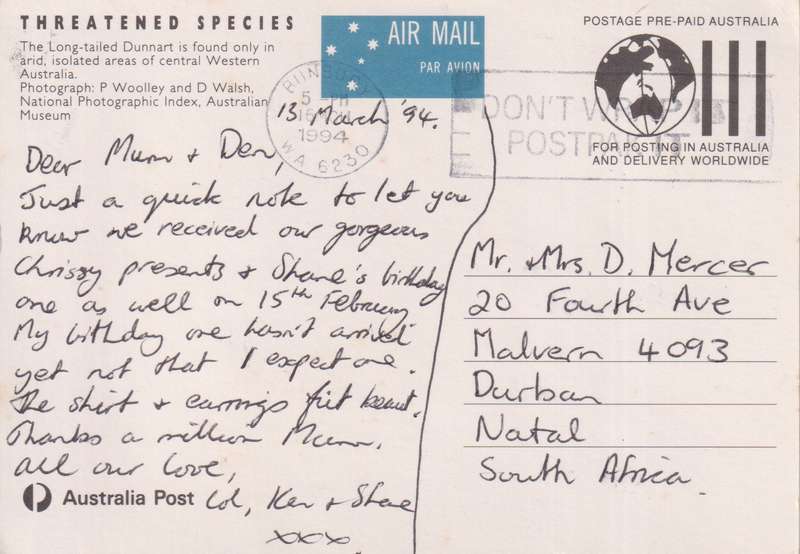 THREATENED SPECIES
The Long-tailed Dunnart is found only in
arid, isolated areas of central Western
Australia.
Photograph: P Woolley and D Walsh,
National Photographic Index, Australian
Museum
AIR MAIL
PAR AVION
POSTAGE PRE-PAID AUSTRALIA
BUNBURY
1994
WA 6230
DON'T WRAP IT
POSTPAK IT
FOR POSTING IN AUSTRALIA
AND DELIVERY WORLDWIDE
13 March '94.
Dear Mum + Den,
Just a quick note to let you
know we received our gorgeous
Chrissy presents + Shane's birthday
one as well on 15th February
My bithday one hasn't arrived
yet not that I expect one.
The shirt + earrings fit beaut.
Thanks a million Mum.
All our love,
Col, Ken + Shane
xxx
Australia Post
Mr. + Mrs. D. Mercer
20 Fourth Ave
Malvern 4093
Durban
Natal
South Africa.